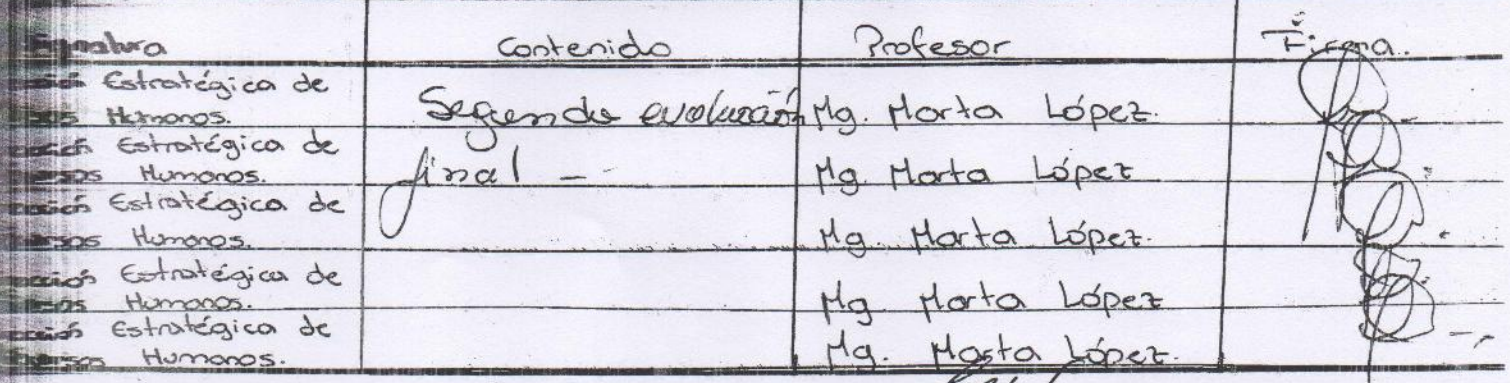 Contenido Profesor Firma.
Estratégica de
Humanos. Segunda evaluación Mg. Marta López.
Estratégica de
Humanos. final - Mg. Marta López
Estratégica de
Humanos. Mg. Marta López.
Estratégica de
Humanos. Mg. Marta López
Estratégica de
Humanos. Mg. Marta López.